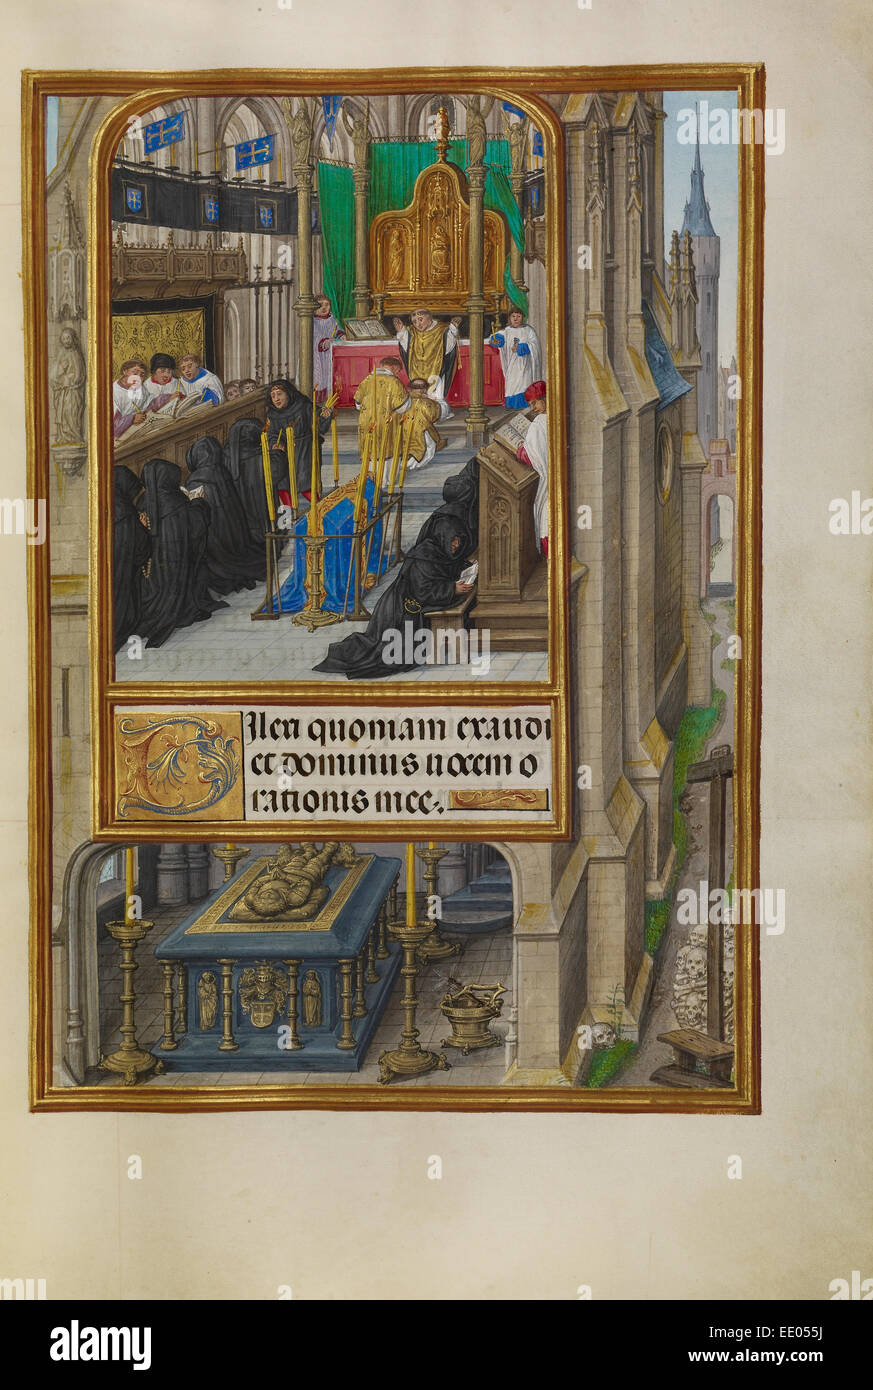 Dilexi quoniam exaudi
et dominus uocem o
rationis mee.
alamy
Image ID: EE055J
www.alamy.com